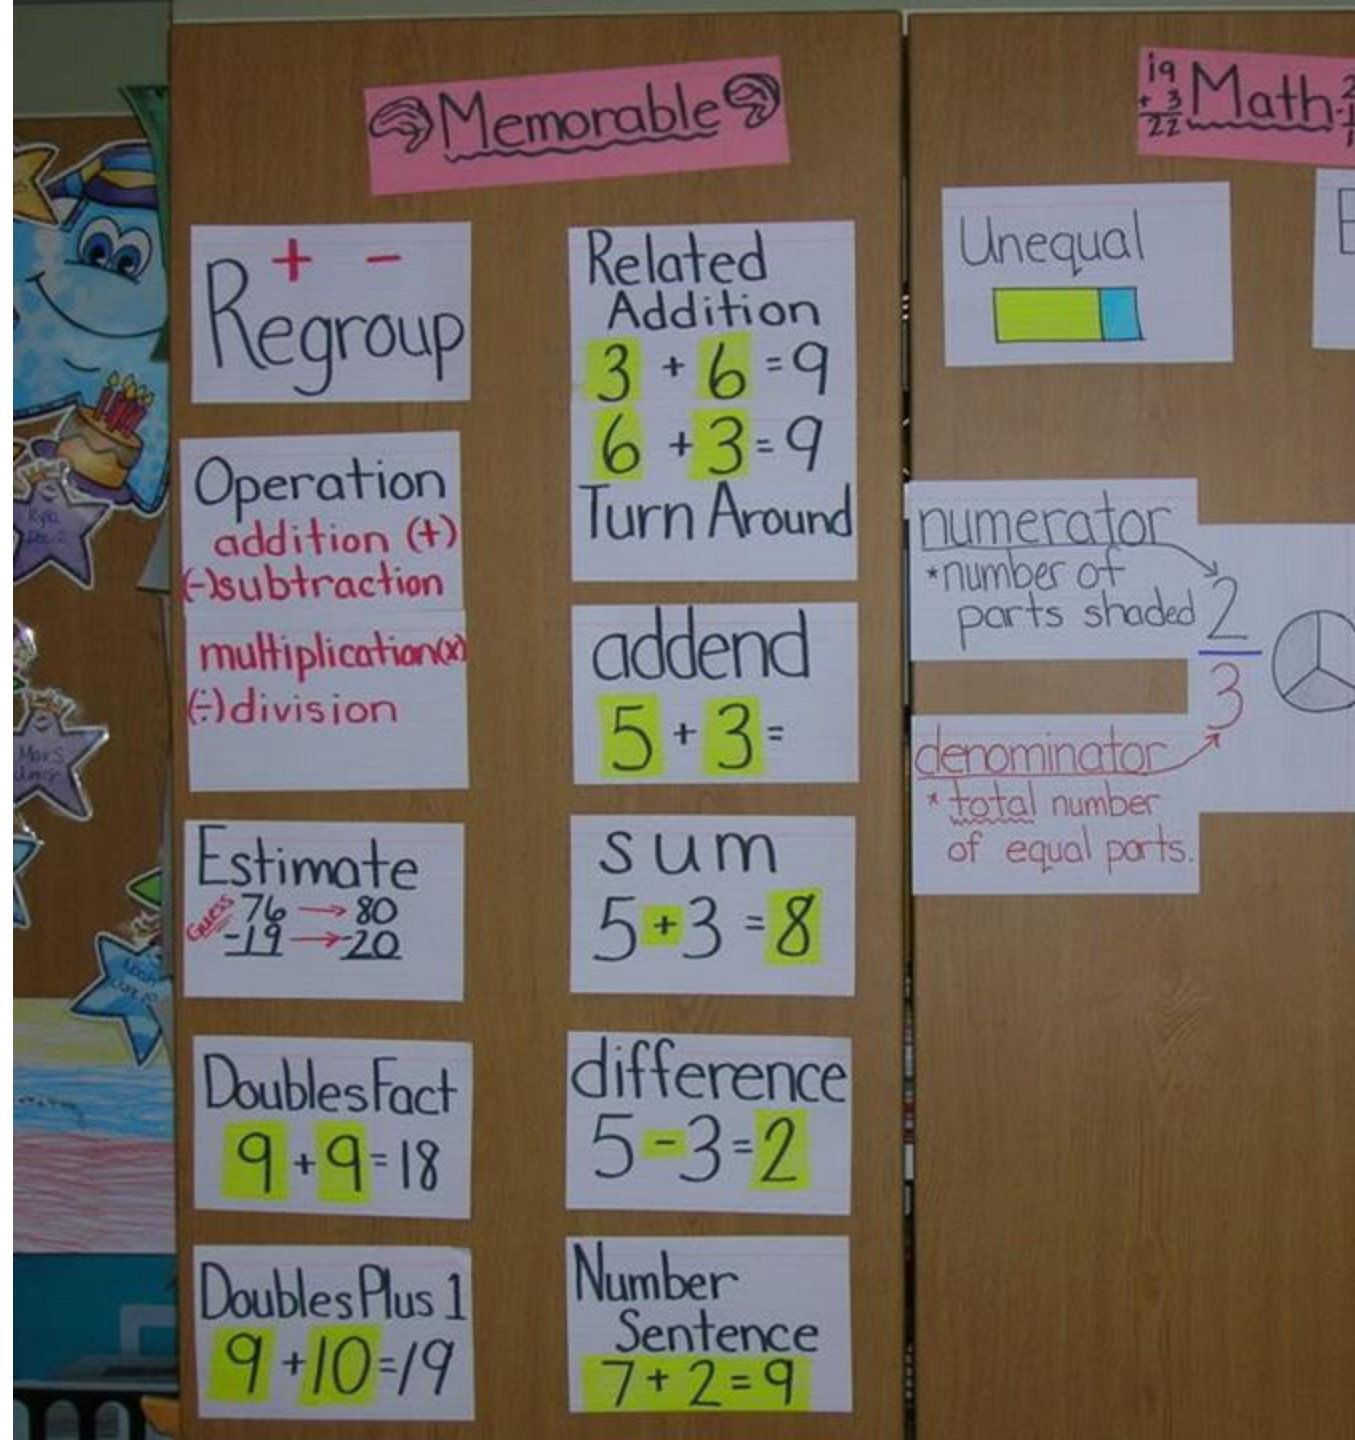 Memorable
+ -
Regroup
Operation
addition (+)
(-)subtraction
multiplication(x)
(÷)division
Estimate
Guess 76 → 80
-19 → -20
Doubles Fact
9 + 9 = 18
Doubles Plus 1
9 + 10 = 19
Related
Addition
3 + 6 = 9
6 + 3 = 9
Turn Around
addend
5 + 3 =
sum
5 + 3 = 8
difference
5 - 3 = 2
Number
Sentence
7 + 2 = 9
19
+ 3
22
Math
Unequal
numerator
*number of
parts shaded
2
3
denominator
* total number
of equal parts.